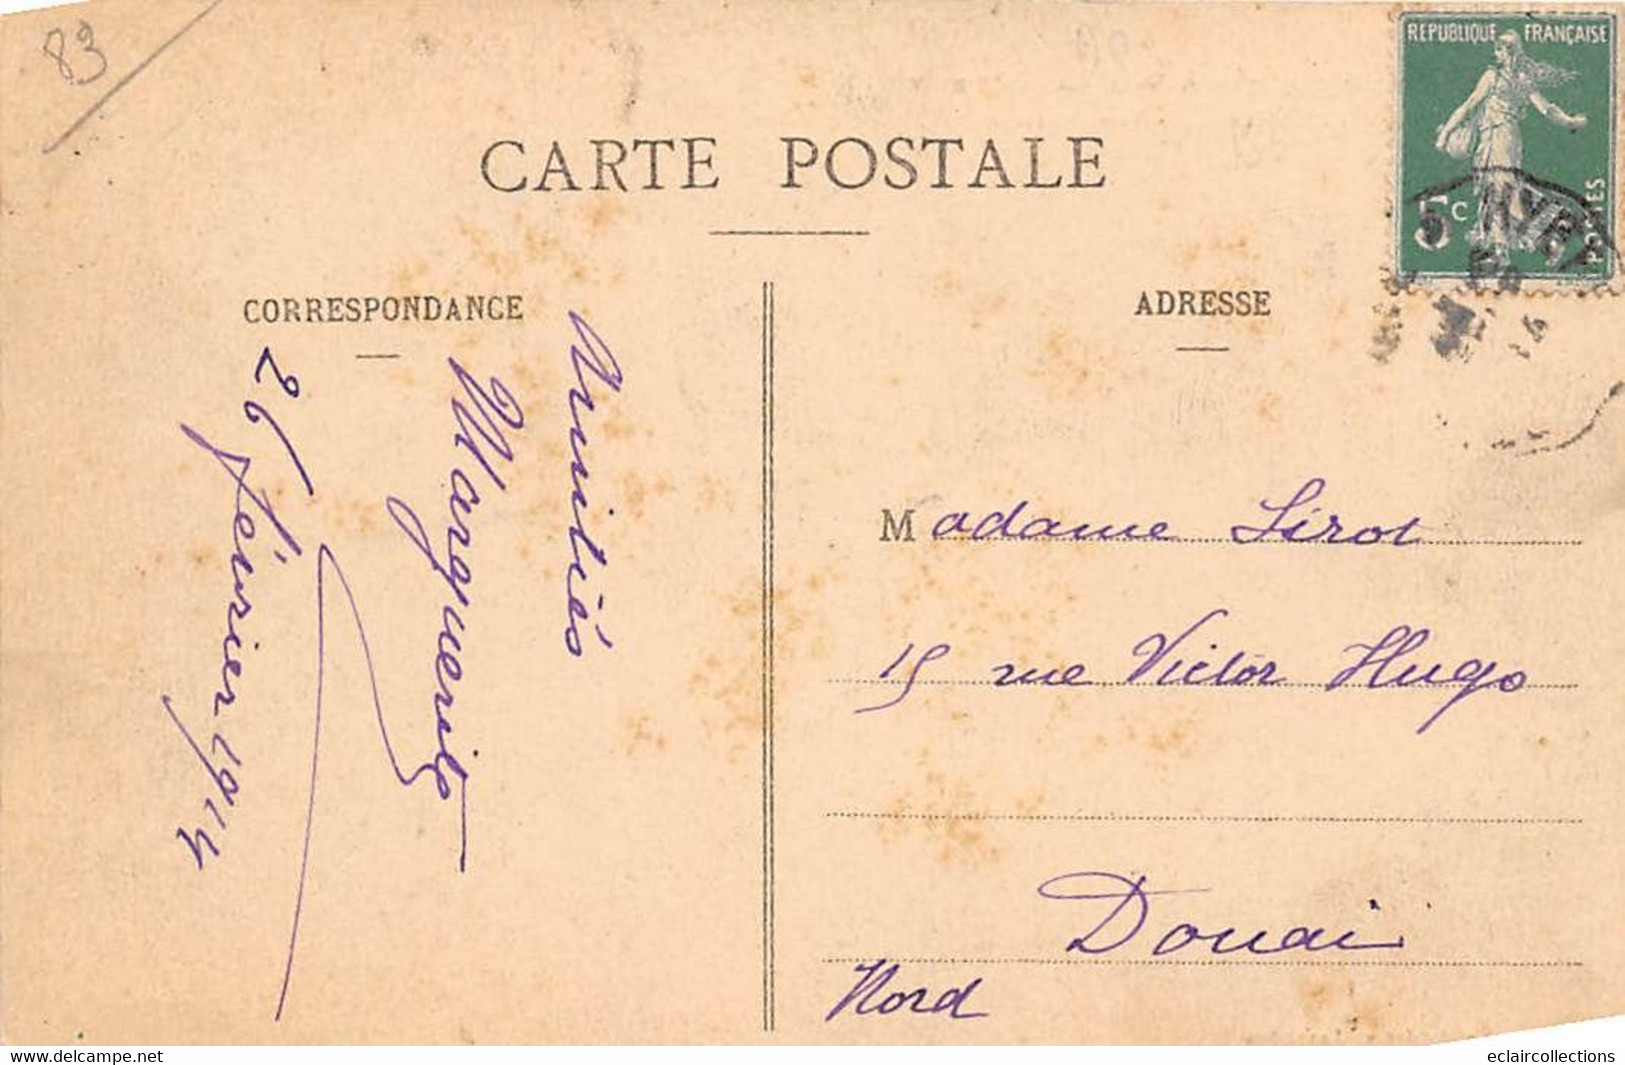 83
CARTE POSTALE
REPUBLIQUE FRANÇAISE
5c
POSTES
HYÈR
14
CORRESPONDANCE
ADRESSE
Amitiés
Marguerite
26 février 1914
Madame Sirot
15 rue Victor Hugo
Douai
Nord
www.delcampe.net
eclaircollections